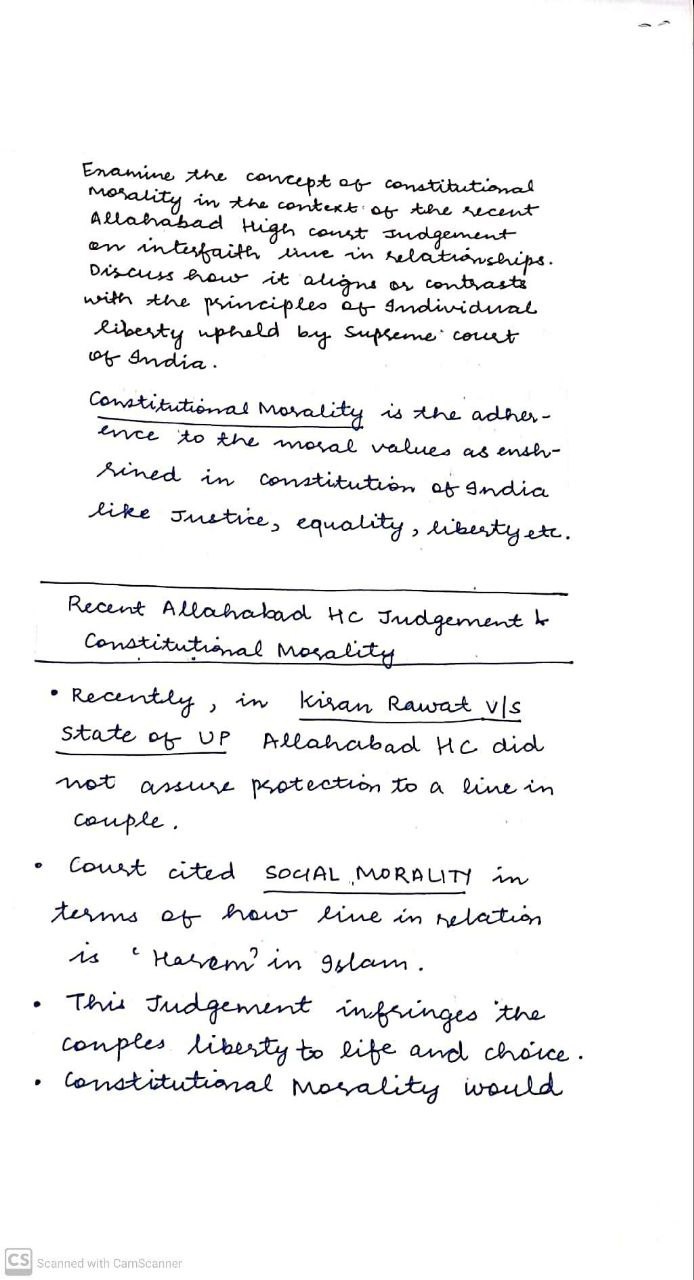 Examine the concept of constitutional
morality in the context of the recent
Allahabad High court Judgement
on interfaith live in relationships.
Discuss how it aligns or contrasts
with the principles of Individual
liberty upheld by Supreme court
of India.
Constitutional Morality is the adher-
ence to the moral values as ensh-
rined in constitution of India
like Justice, equality, liberty etc.
Recent Allahabad HC Judgement &
Constitutional Morality
• Recently, in Kiran Rawat v/s
State of UP Allahabad HC did
not assure protection to a live in
couple.
• Court cited SOCIAL MORALITY in
terms of how live in relation
is 'Harem' in Islam.
• This Judgement infringes the
couples liberty to life and choice.
• Constitutional Morality would
CS Scanned with CamScanner